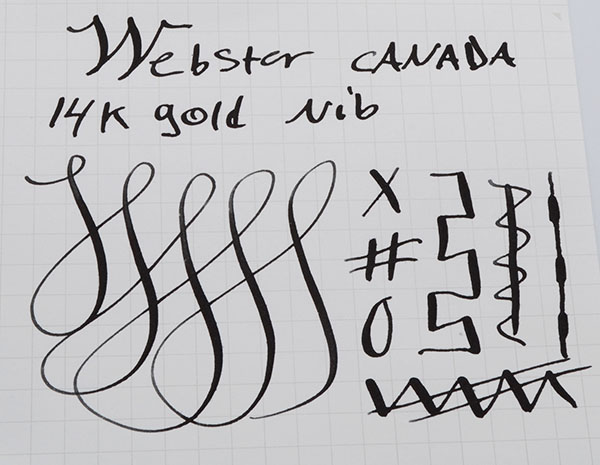 Webster CANADA
14K gold Nib
X
#
O